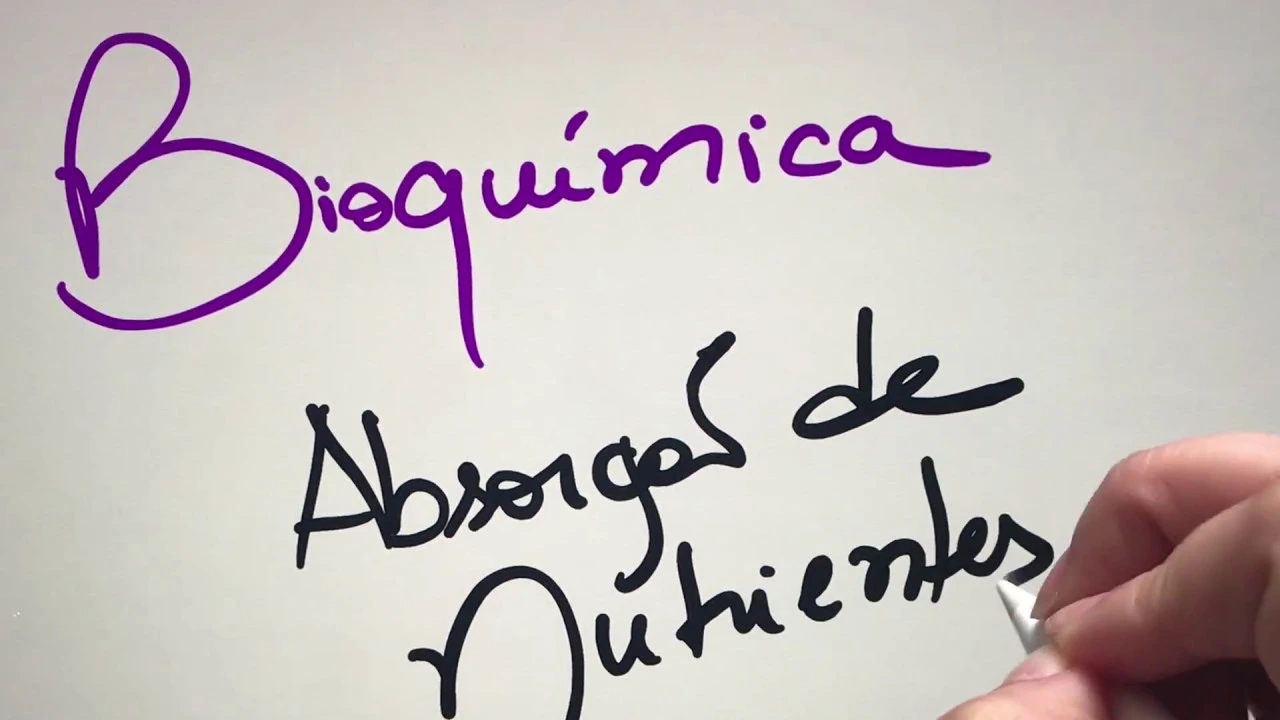 Bioquímica
Absorção de
Nutrientes